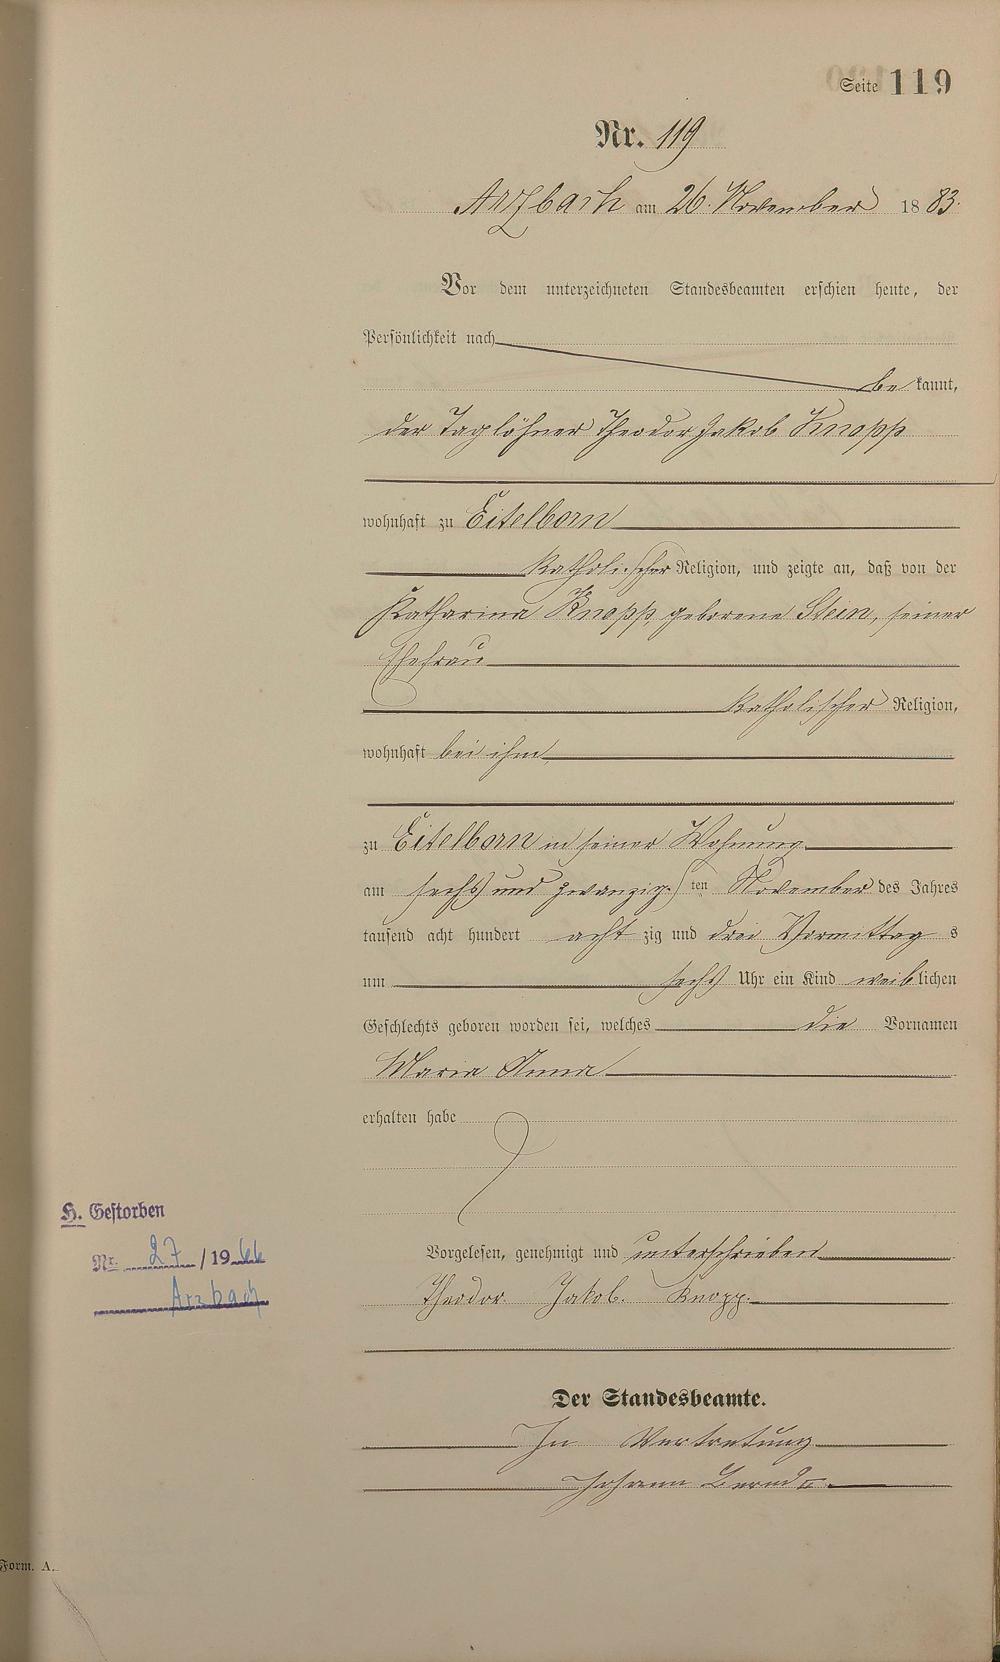 Seite 119
Nr. 119
Arzbach am 26. November 1883.
Vor dem unterzeichneten Standesbeamten erschien heute, der
Persönlichkeit nach
bekannt,
der Taglöhner Theodor Jakob Knopp
wohnhaft zu Eitelborn
katholischer Religion, und zeigte an, daß von der
Katharina Knopp, geborene Stein, seiner
Ehefrau
katholischer Religion,
wohnhaft bei ihm,
zu Eitelborn in seiner Wohnung
am sechs und zwanzig ten November des Jahres
tausend acht hundert acht zig und drei Vormittags
um sechs Uhr ein Kind weiblichen
Geschlechts geboren worden sei, welches die Vornamen
Maria Anna
erhalten habe
H. Gestorben
Nr. 27 / 1966
Arzbach
Vorgelesen, genehmigt und unterschrieben
Theodor Jakob. Knopp.
Der Standesbeamte.
In Vertretung
Johann Bernd II.
Form. A.